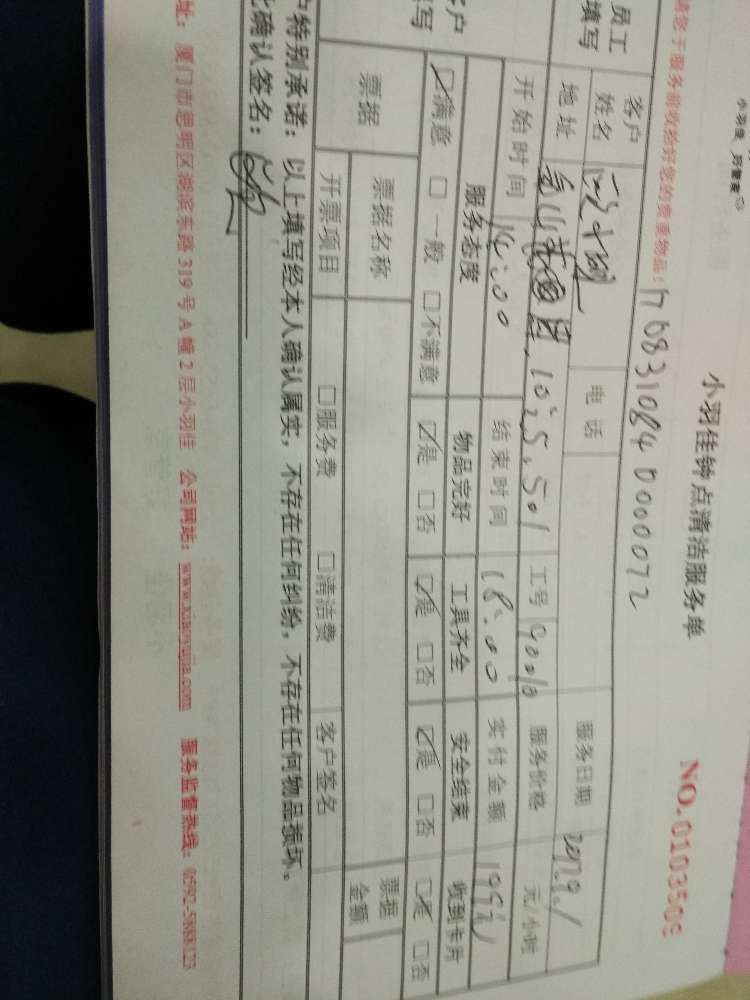 小羽佳钟点清洁服务单
NO.0103509
请您于服务前收拾好您的贵重物品!
员工
填写
客户
姓名
电话
服务日期
地址
10,5,501
工号
服务价格
元/小时
开始时间
14:00
结束时间
18:00
实付金额
客户
填写
服务态度
物品完好
工具齐全
安全结束
收到卡片
☑满意 □一般 □不满意
☑是 □否
☑是 □否
☑是 □否
☑是 □否
票据
票据名称
票据
金额
开票项目
□服务费
□清洁费
客户签名
户特别承诺:以上填写经本人确认属实,不存在任何纠纷,不存在任何物品损坏。
此确认签名:
址:厦门市思明区湖滨东路319号A幢2层小羽佳 公司网站:www.xiaoyujia.com 服务监督热线:0592-5888123